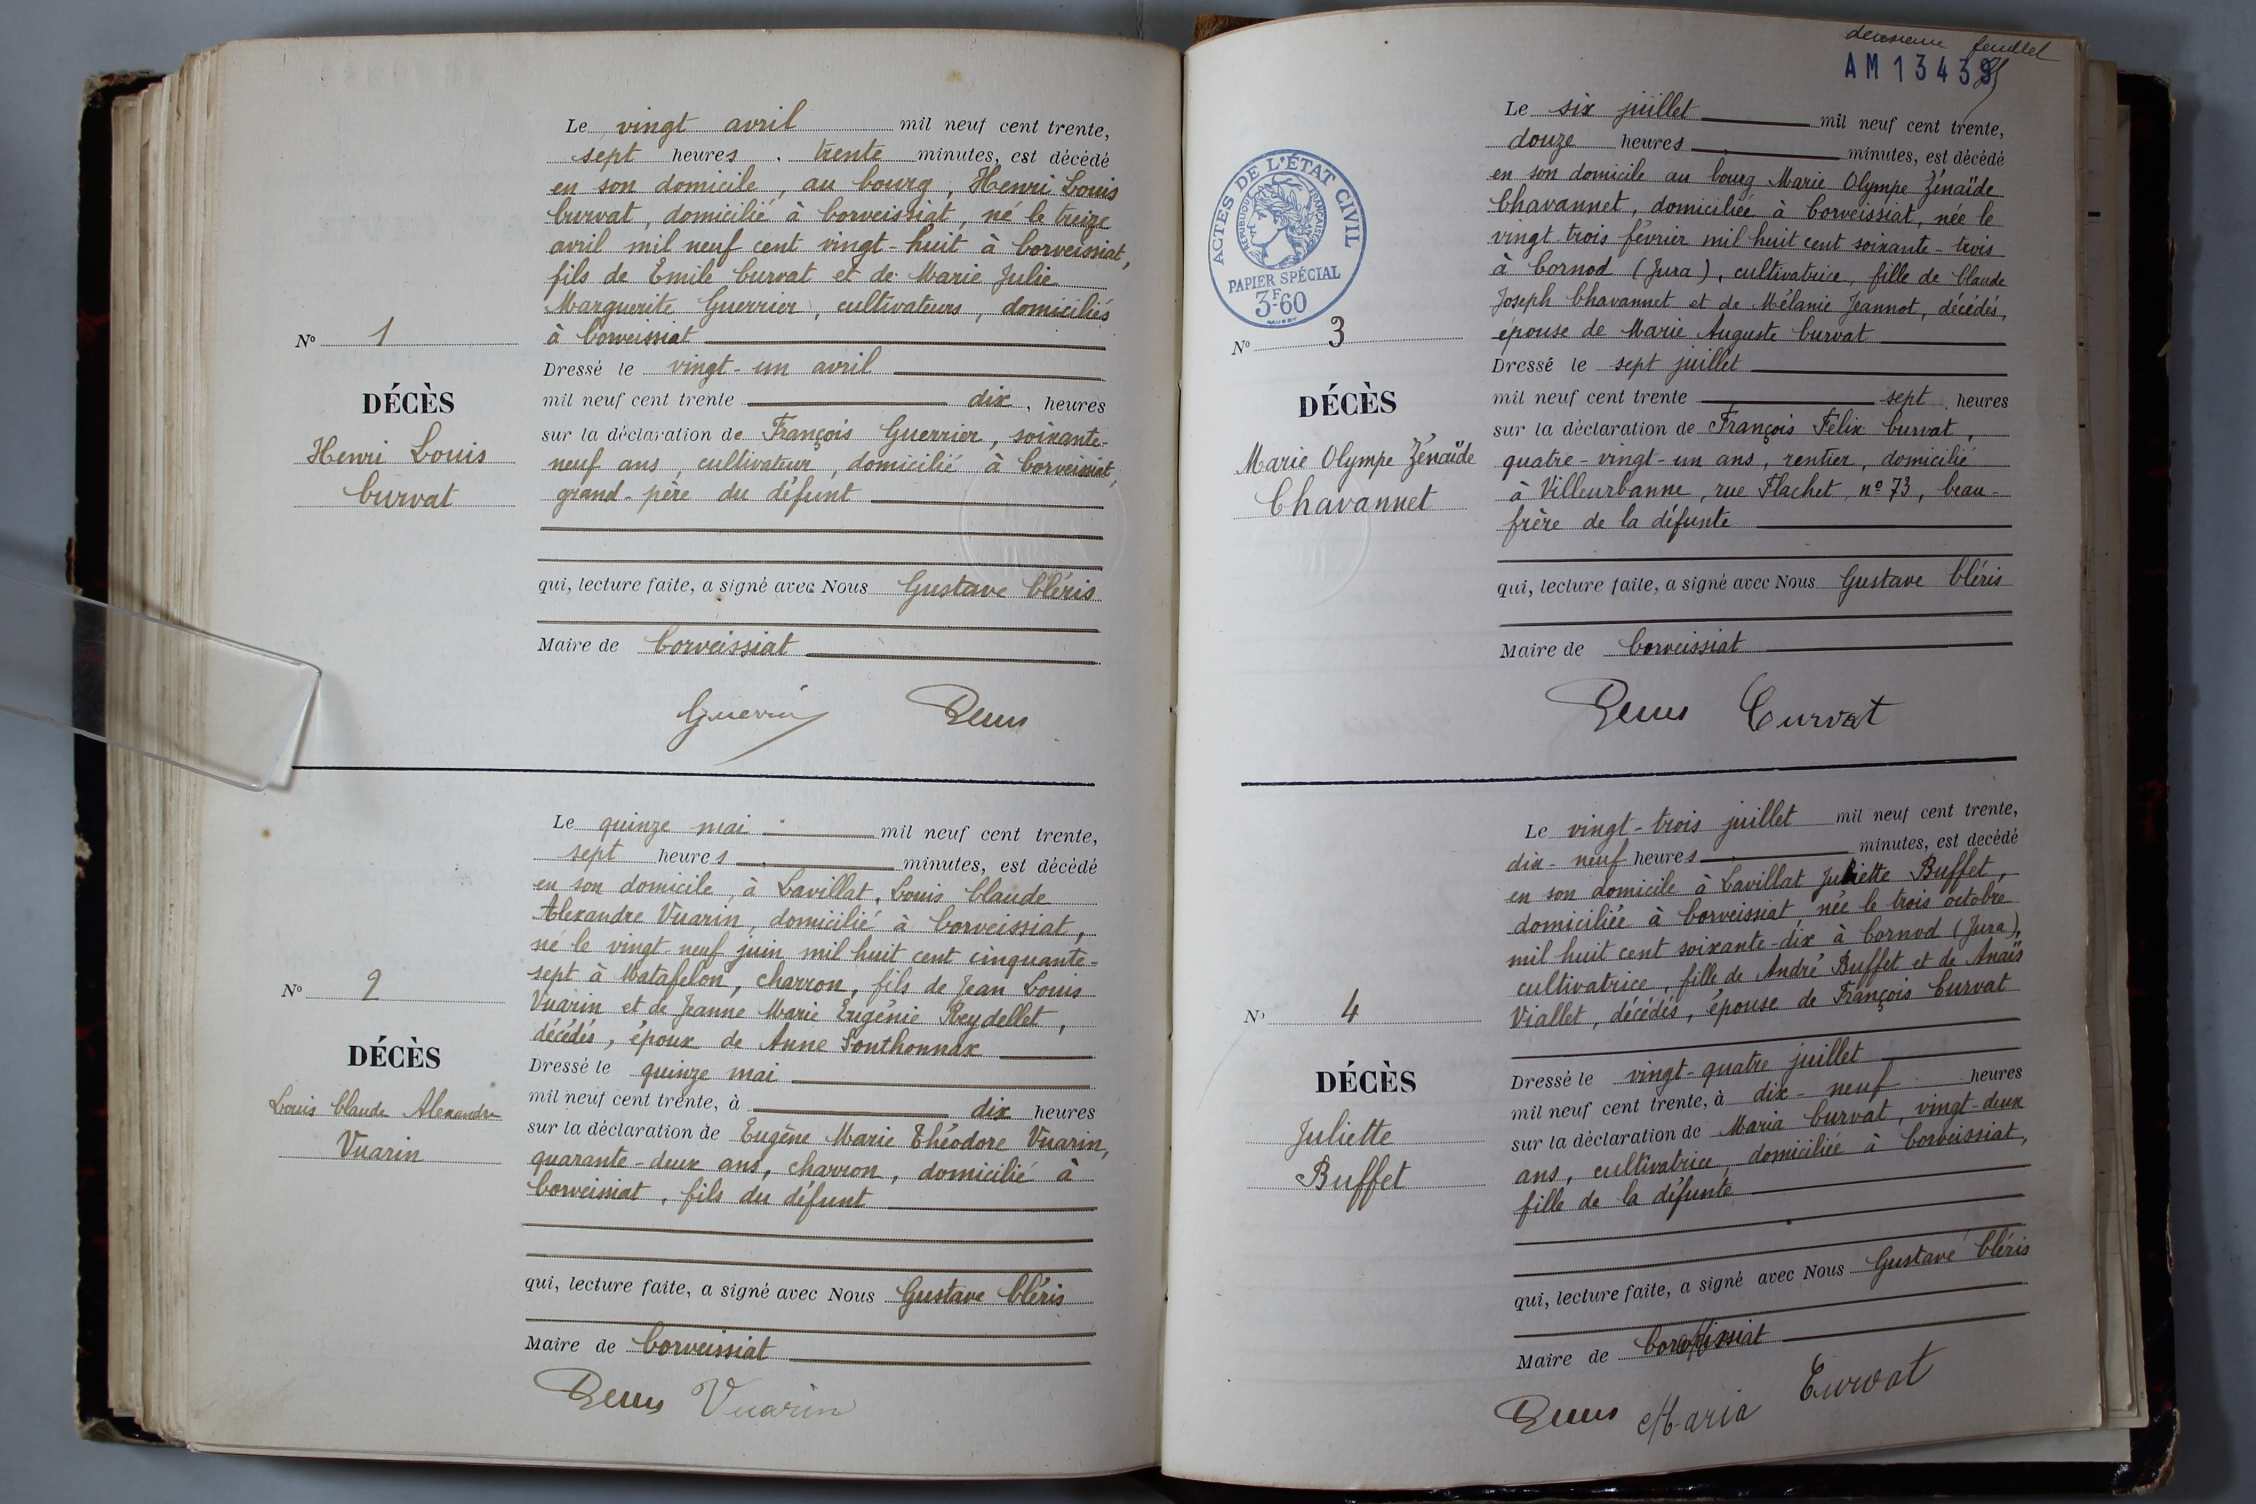 Le vingt avril mil neuf cent trente,
sept heures trente minutes, est décédé
en son domicile, au bourg, Henri Louis
Curvat, domicilié à Corveissiat, né le treize
avril mil neuf cent vingt-huit à Corveissiat,
fils de Émile Curvat et de Marie Julie
Marguerite Guerrier, cultivateurs, domiciliés
à Corveissiat
Nº 1
DÉCÈS
Henri Louis
Curvat
Dressé le vingt-un avril
mil neuf cent trente dix, heures
sur la déclaration de François Guerrier, soixante-
neuf ans, cultivateur, domicilié à Corveissiat,
grand-père du défunt
qui, lecture faite, a signé avec Nous Gustave Cléris
Maire de Corveissiat
Le quinze mai mil neuf cent trente,
sept heures minutes, est décédé
en son domicile, à Lavillat, Louis Claude
Alexandre Vuarin, domicilié à Corveissiat,
né le vingt neuf juin mil huit cent cinquante-
sept à Matafelon, charron, fils de Jean Louis
Vuarin et de Jeanne Marie Eugénie Reydellet,
décédés, époux de Anne Sonthonnax
Nº 2
DÉCÈS
Louis Claude Alexandre
Vuarin
Dressé le quinze mai
mil neuf cent trente, à dix heures
sur la déclaration de Eugène Marie Théodore Vuarin,
quarante-deux ans, charron, domicilié à
Corveissiat, fils du défunt
qui, lecture faite, a signé avec Nous Gustave Cléris
Maire de Corveissiat
Vuarin
feuillet
AM 13439
ACTES DE L'ÉTAT CIVIL
RÉPUBLIQUE FRANÇAISE
PAPIER SPÉCIAL
3F60
Le six juillet mil neuf cent trente,
douze heures minutes, est décédé
en son domicile au bourg Marie Olympe Zénaïde
Chavannet, domiciliée à Corveissiat, née le
vingt trois février mil huit cent soixante-trois
à Cornod (Jura), cultivatrice, fille de Claude
Joseph Chavannet et de Mélanie Jeannot, décédés,
épouse de Marie Auguste Curvat
Nº 3
DÉCÈS
Marie Olympe Zénaïde
Chavannet
Dressé le sept juillet
mil neuf cent trente sept heures
sur la déclaration de François Félix Curvat,
quatre-vingt-un ans, rentier, domicilié
à Villeurbanne, rue Flachet, nº 73, beau-
frère de la défunte
qui, lecture faite, a signé avec Nous Gustave Cléris
Maire de Corveissiat
Curvat
Le vingt-trois juillet mil neuf cent trente,
dix-neuf heures minutes, est décédé
en son domicile à Lavillat Juliette Buffet,
domiciliée à Corveissiat, née le trois octobre
mil huit cent soixante-dix à Cornod (Jura),
cultivatrice, fille de André Buffet et de Anaïs
Viallet, décédés, épouse de François Curvat
Nº 4
DÉCÈS
Juliette
Buffet
Dressé le vingt-quatre juillet
mil neuf cent trente, à dix-neuf heures
sur la déclaration de Maria Curvat, vingt-deux
ans, cultivatrice, domiciliée à Corveissiat,
fille de la défunte
qui, lecture faite, a signé avec Nous Gustave Cléris
Maire de Corveissiat
Maria Curvat